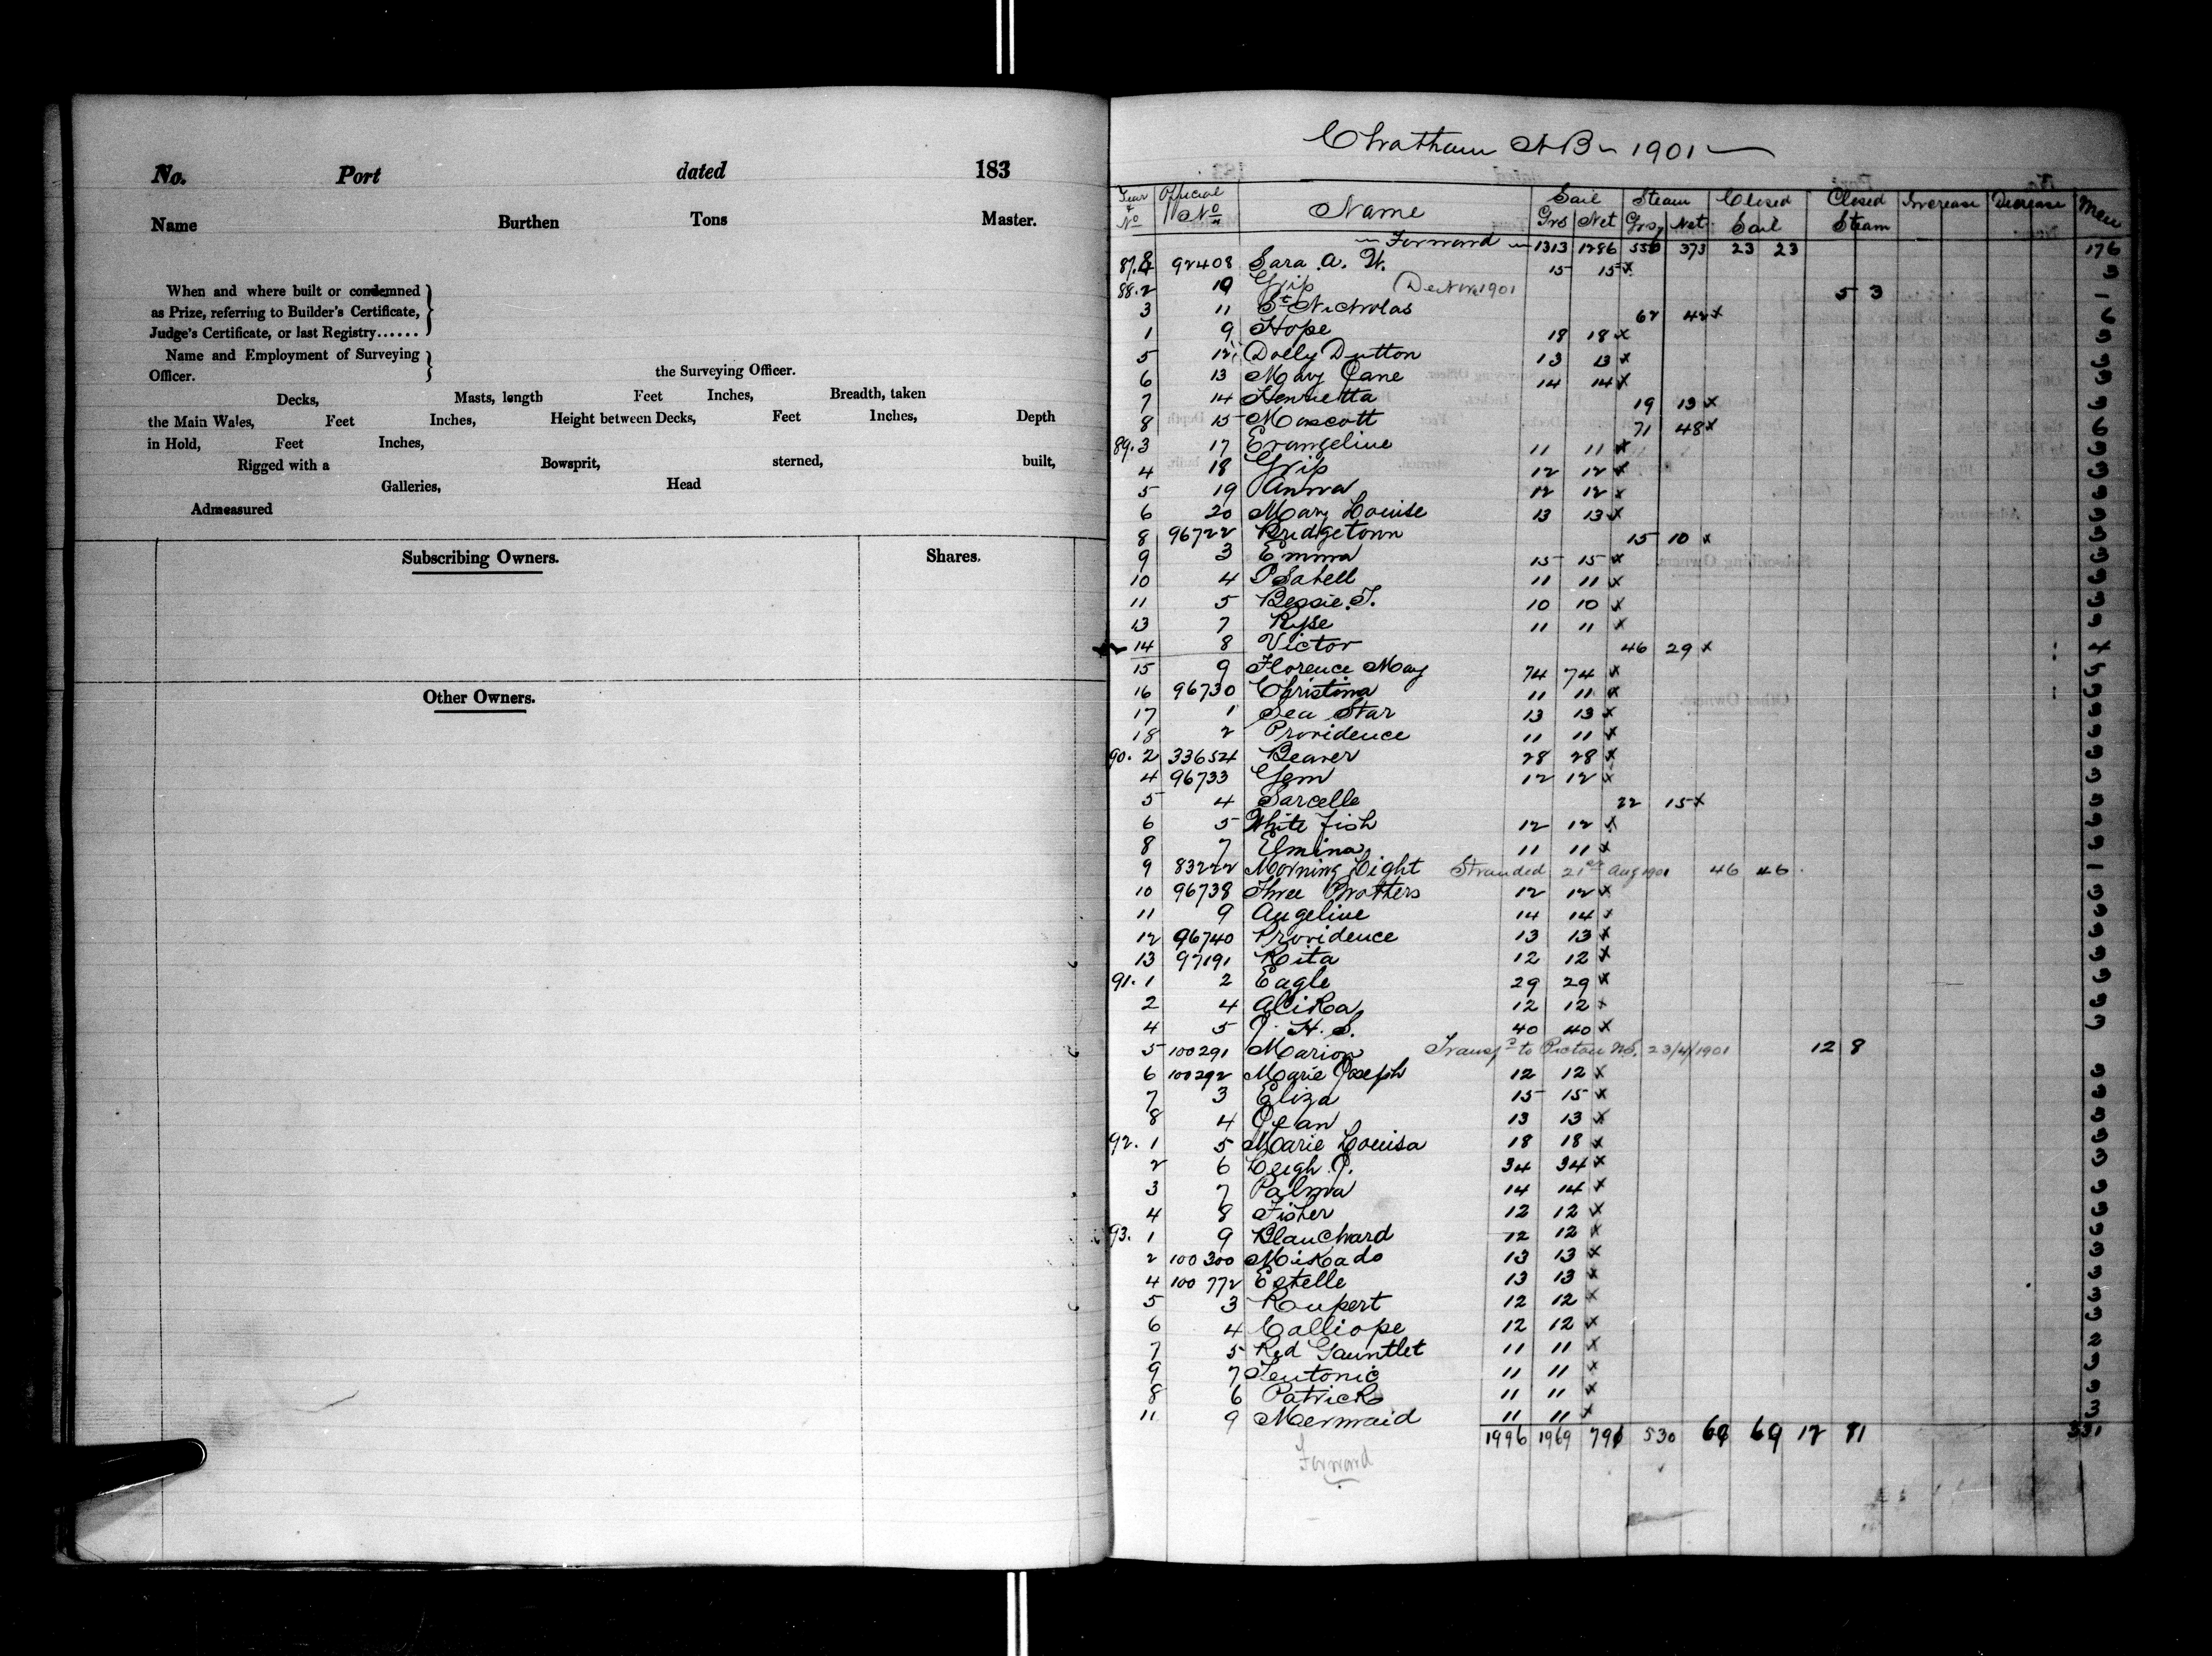 No. Port dated 183
Name Burthen Tons Master.
When and where built or condemned
as Prize, referring to Builder's Certificate,
Judge's Certificate, or last Registry......
Name and Employment of Surveying
Officer. the Surveying Officer.
Decks, Masts, length Feet Inches, Breadth, taken
the Main Wales, Feet Inches, Height between Decks, Feet Inches, Depth
in Hold, Feet Inches,
Rigged with a Bowsprit, sterned, built,
Galleries, Head
Admeasured
Subscribing Owners. Shares.
Other Owners.
Chatham N.B. 1901
Year & No Official No Name Sail Grs Net Steam Grs Net Closed Sail Closed Steam Increase Decrease Men
Forward 1313 1286 556 373 23 23 176
87. 92408 Sara A. W. 15 15 x 3
88. 2 10 Grip 1901 5 3 1
3 11 St Nicholas 62 42 x 6
1 9 Hope 18 18 x 3
5 12 Dolly Dutton 13 13 x 3
6 13 Mary Jane 14 14 x 3
7 14 Henrietta 19 13 x 3
8 15 Mascott 71 48 x 6
89. 3 17 Evangeline 11 11 x 3
4 18 Grip 12 12 x 3
5 19 Anna 12 12 x 3
6 20 Mary Louise 13 13 x 3
8 96722 Bridgetown 15 10 x 3
9 3 Emma 15 15 x 3
10 4 Isabell 11 11 x 3
11 5 Bessie T. 10 10 x 3
13 7 Ryse 11 11 x 3
14 8 Victor 46 29 x 4
15 9 Florence May 74 74 x 5
16 96730 Christina 11 11 x 3
17 1 Sea Star 13 13 x 3
18 2 Providence 11 11 x 3
90. 2 33654 Beaver 28 28 x 3
4 96733 Gem 12 12 x 3
5 4 Sarcelle 22 15 x 3
6 5 White fish 12 12 x 3
8 7 Elmina 11 11 x 3
9 83222 Morning Light Stranded 21st Aug 1901 46 46 1
10 96738 Three Brothers 12 12 x 3
11 9 Angeline 14 14 x 3
12 96740 Providence 13 13 x 3
13 97191 Rita 12 12 x 3
91. 1 2 Eagle 29 29 x 3
2 4 Alika 12 12 x 3
4 5 J. H. S. 40 40 x 3
5 100291 Marion Transfd to Pictou NS. 23/4/1901 12 8
6 100292 Marie Joseph 12 12 x 3
7 3 Eliza 15 15 x 3
8 4 Jean 13 13 x 3
92. 1 5 Marie Louisa 18 18 x 3
2 6 Leigh J. 34 34 x 3
3 7 Palma 14 14 x 3
4 8 Fisher 12 12 x 3
93. 1 9 Blanchard 12 12 x 3
2 100300 Mikado 13 13 x 3
4 100772 Estelle 13 13 x 3
5 3 Rupert 12 12 x 3
6 4 Calliope 12 12 x 3
7 5 Red Gauntlet 11 11 x 2
9 7 Teutonic 11 11 x 3
8 6 Patrick 11 11 x 3
11 9 Mermaid 11 11 x 3
1996 1969 791 530 69 69 331
Forward